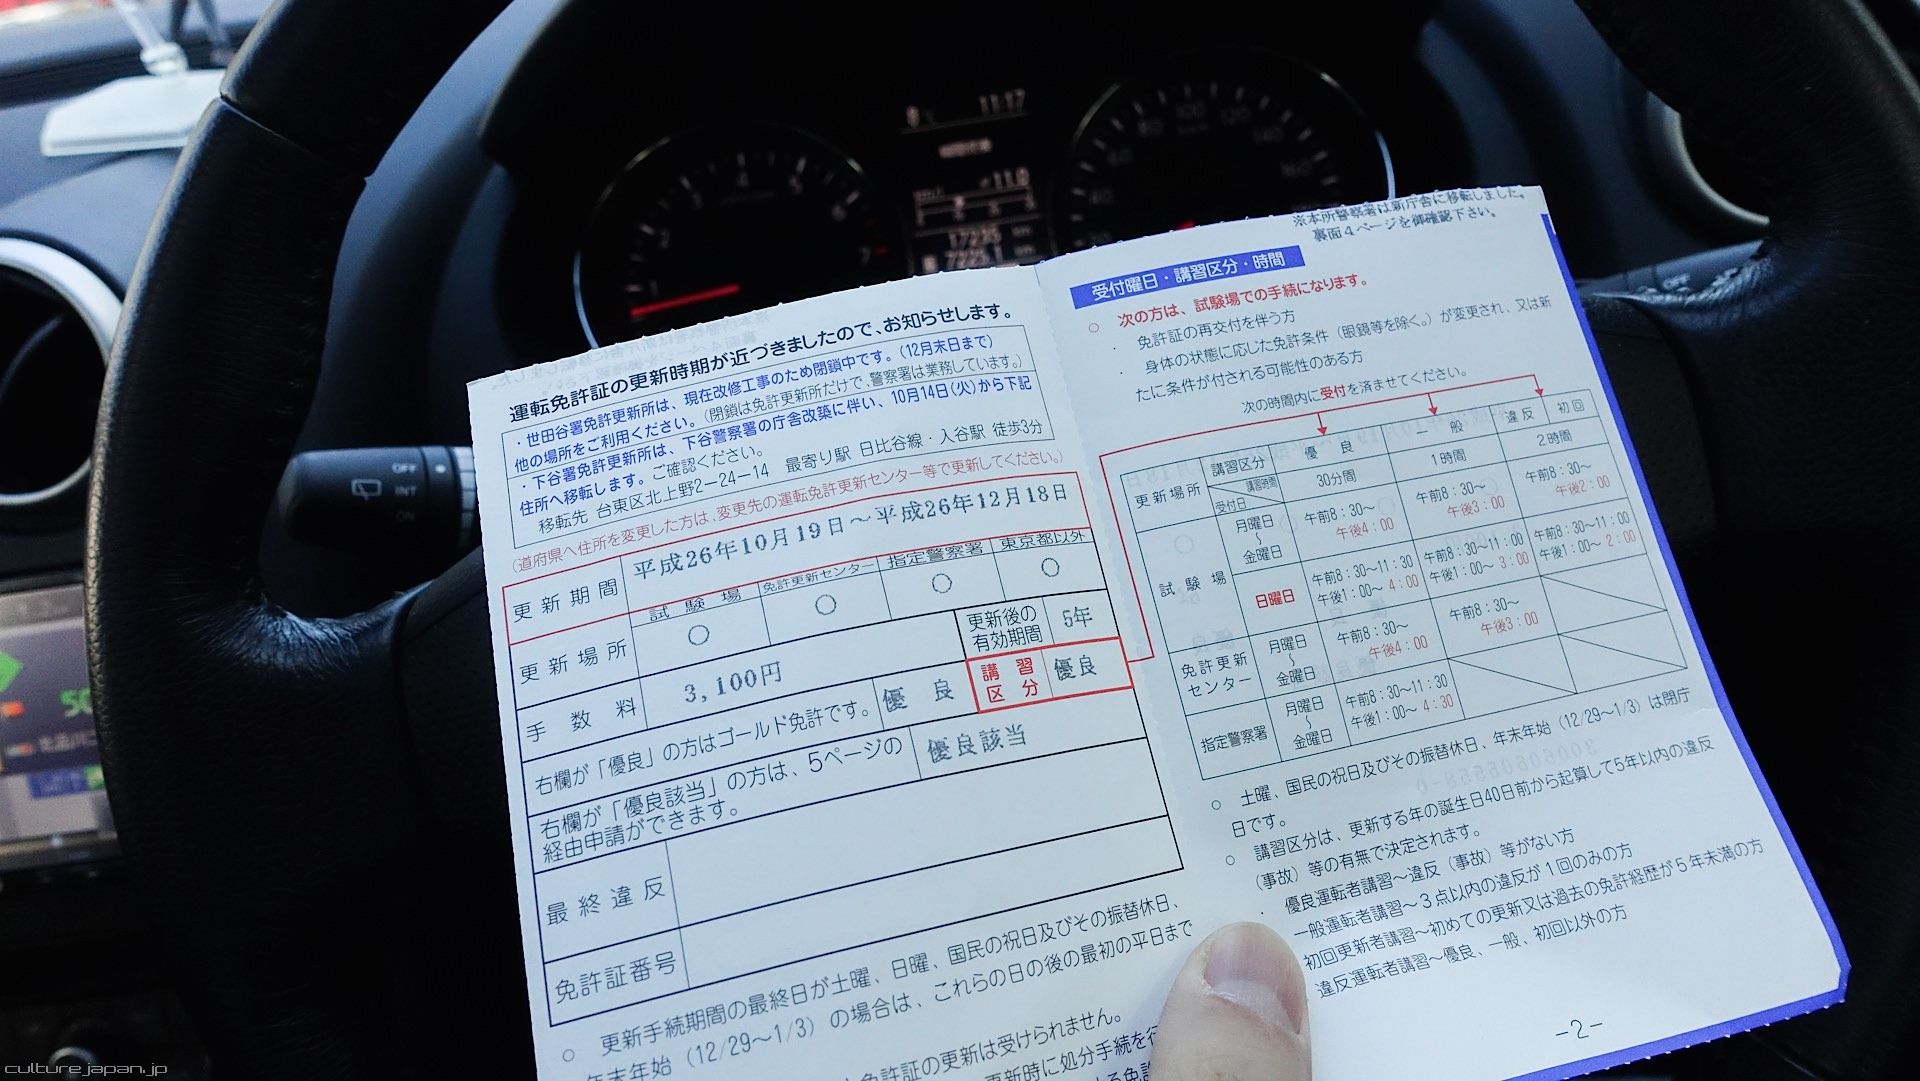 11:17
運転免許証の更新時期が近づきましたので、お知らせします。
・世田谷署免許更新所は、現在改修工事のため閉鎖中です。(12月末日まで)
他の場所をご利用ください。(閉鎖は免許更新所だけで、警察署は業務しています。)
・下谷署免許更新所は、下谷警察署の庁舎改築に伴い、10月14日(火)から下記
住所へ移転します。ご確認ください。
移転先 台東区北上野2－24－14 最寄り駅 日比谷線・入谷駅 徒歩3分
(道府県へ住所を変更した方は、変更先の運転免許更新センター等で更新してください。)
更新期間 平成26年10月19日～平成26年12月18日
更新場所 試験場 免許更新センター 指定警察署 東京都以外
○ ○ ○ ○
手数料 3,100円 更新後の有効期間 5年
右欄が「優良」の方はゴールド免許です。 優良 講習区分 優良
右欄が「優良該当」の方は、5ページの 優良該当
経由申請ができます。
最終違反
免許証番号
○ 更新手続期間の最終日が土曜、日曜、国民の祝日及びその振替休日、
年末年始(12/29～1/3)の場合は、これらの日の後の最初の平日まで
免許証の更新は受けられません。
更新時に処分手続を行
※本所警察署は新庁舎に移転しました。
裏面4ページを御確認下さい。
受付曜日・講習区分・時間
○ 次の方は、試験場での手続になります。
・ 免許証の再交付を伴う方
・ 身体の状態に応じた免許条件(眼鏡等を除く。)が変更され、又は新
たに条件が付される可能性のある方
次の時間内に受付を済ませてください。
更新場所 講習区分 優良 一般 違反 初回
講習時間 30分間 1時間 2時間
受付日
試験場 月曜日～金曜日 午前8:30～午後4:00 午前8:30～午後3:00 午前8:30～午後2:00
日曜日 午前8:30～11:30 午後1:00～4:00 午前8:30～11:00 午後1:00～3:00 午前8:30～11:00 午後1:00～2:00
免許更新センター 月曜日～金曜日 午前8:30～午後4:00 午前8:30～午後3:00
指定警察署 月曜日～金曜日 午前8:30～11:30 午後1:00～4:30
○ 土曜、国民の祝日及びその振替休日、年末年始(12/29～1/3)は閉庁
日です。
○ 講習区分は、更新する年の誕生日40日前から起算して5年以内の違反
(事故)等の有無で決定されます。
・ 優良運転者講習～違反(事故)等がない方
一般運転者講習～3点以内の違反が1回のみの方
初回更新者講習～初めての更新又は過去の免許経歴が5年未満の方
違反運転者講習～優良、一般、初回以外の方
-2-
OFF
INT
ON
culture.japan.jp